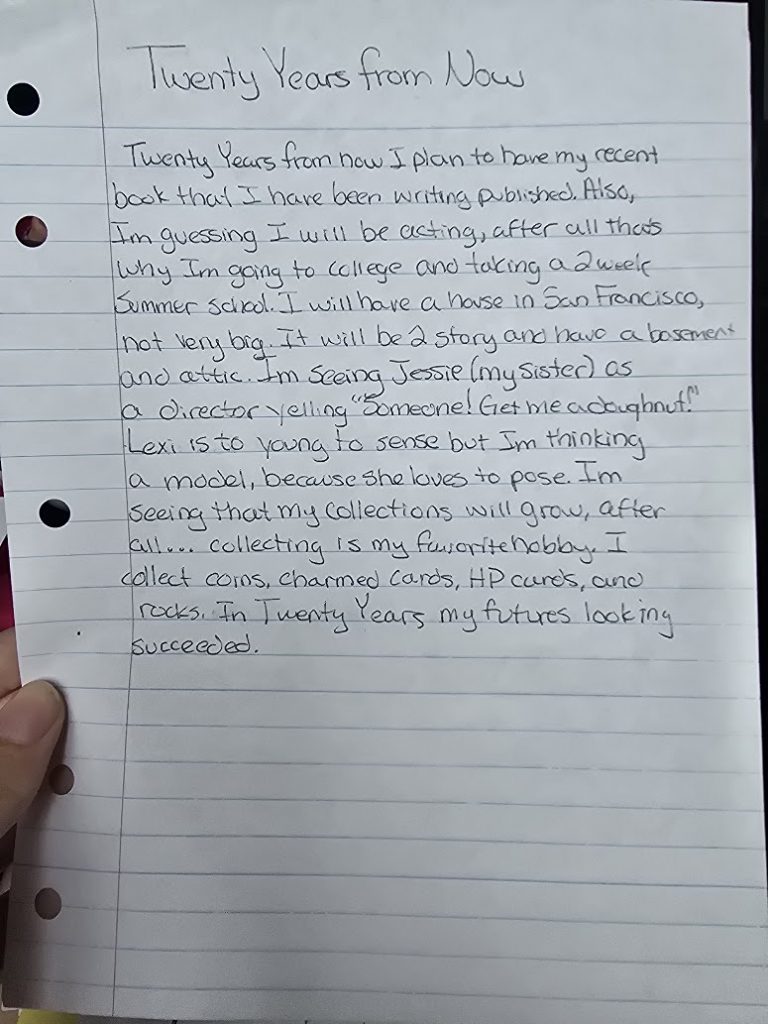 Twenty Years from Now
Twenty Years from now I plan to have my recent
book that I have been writing published. Also,
Im guessing I will be acting, after all thats
why Im going to college and taking a 2 week
Summer school. I will have a house in San Francisco,
not very big. It will be 2 story and have a basement
and attic. Im seeing Jessie (my sister) as
a director yelling "Someone! Get me a doughnut!"
Lexi is to young to sense but Im thinking
a model, because she loves to pose. Im
seeing that my collections will grow, after
all... collecting is my favorite hobby. I
collect coins, charmed cards, HP cards, and
rocks. In Twenty Years my futures looking
succeeded.